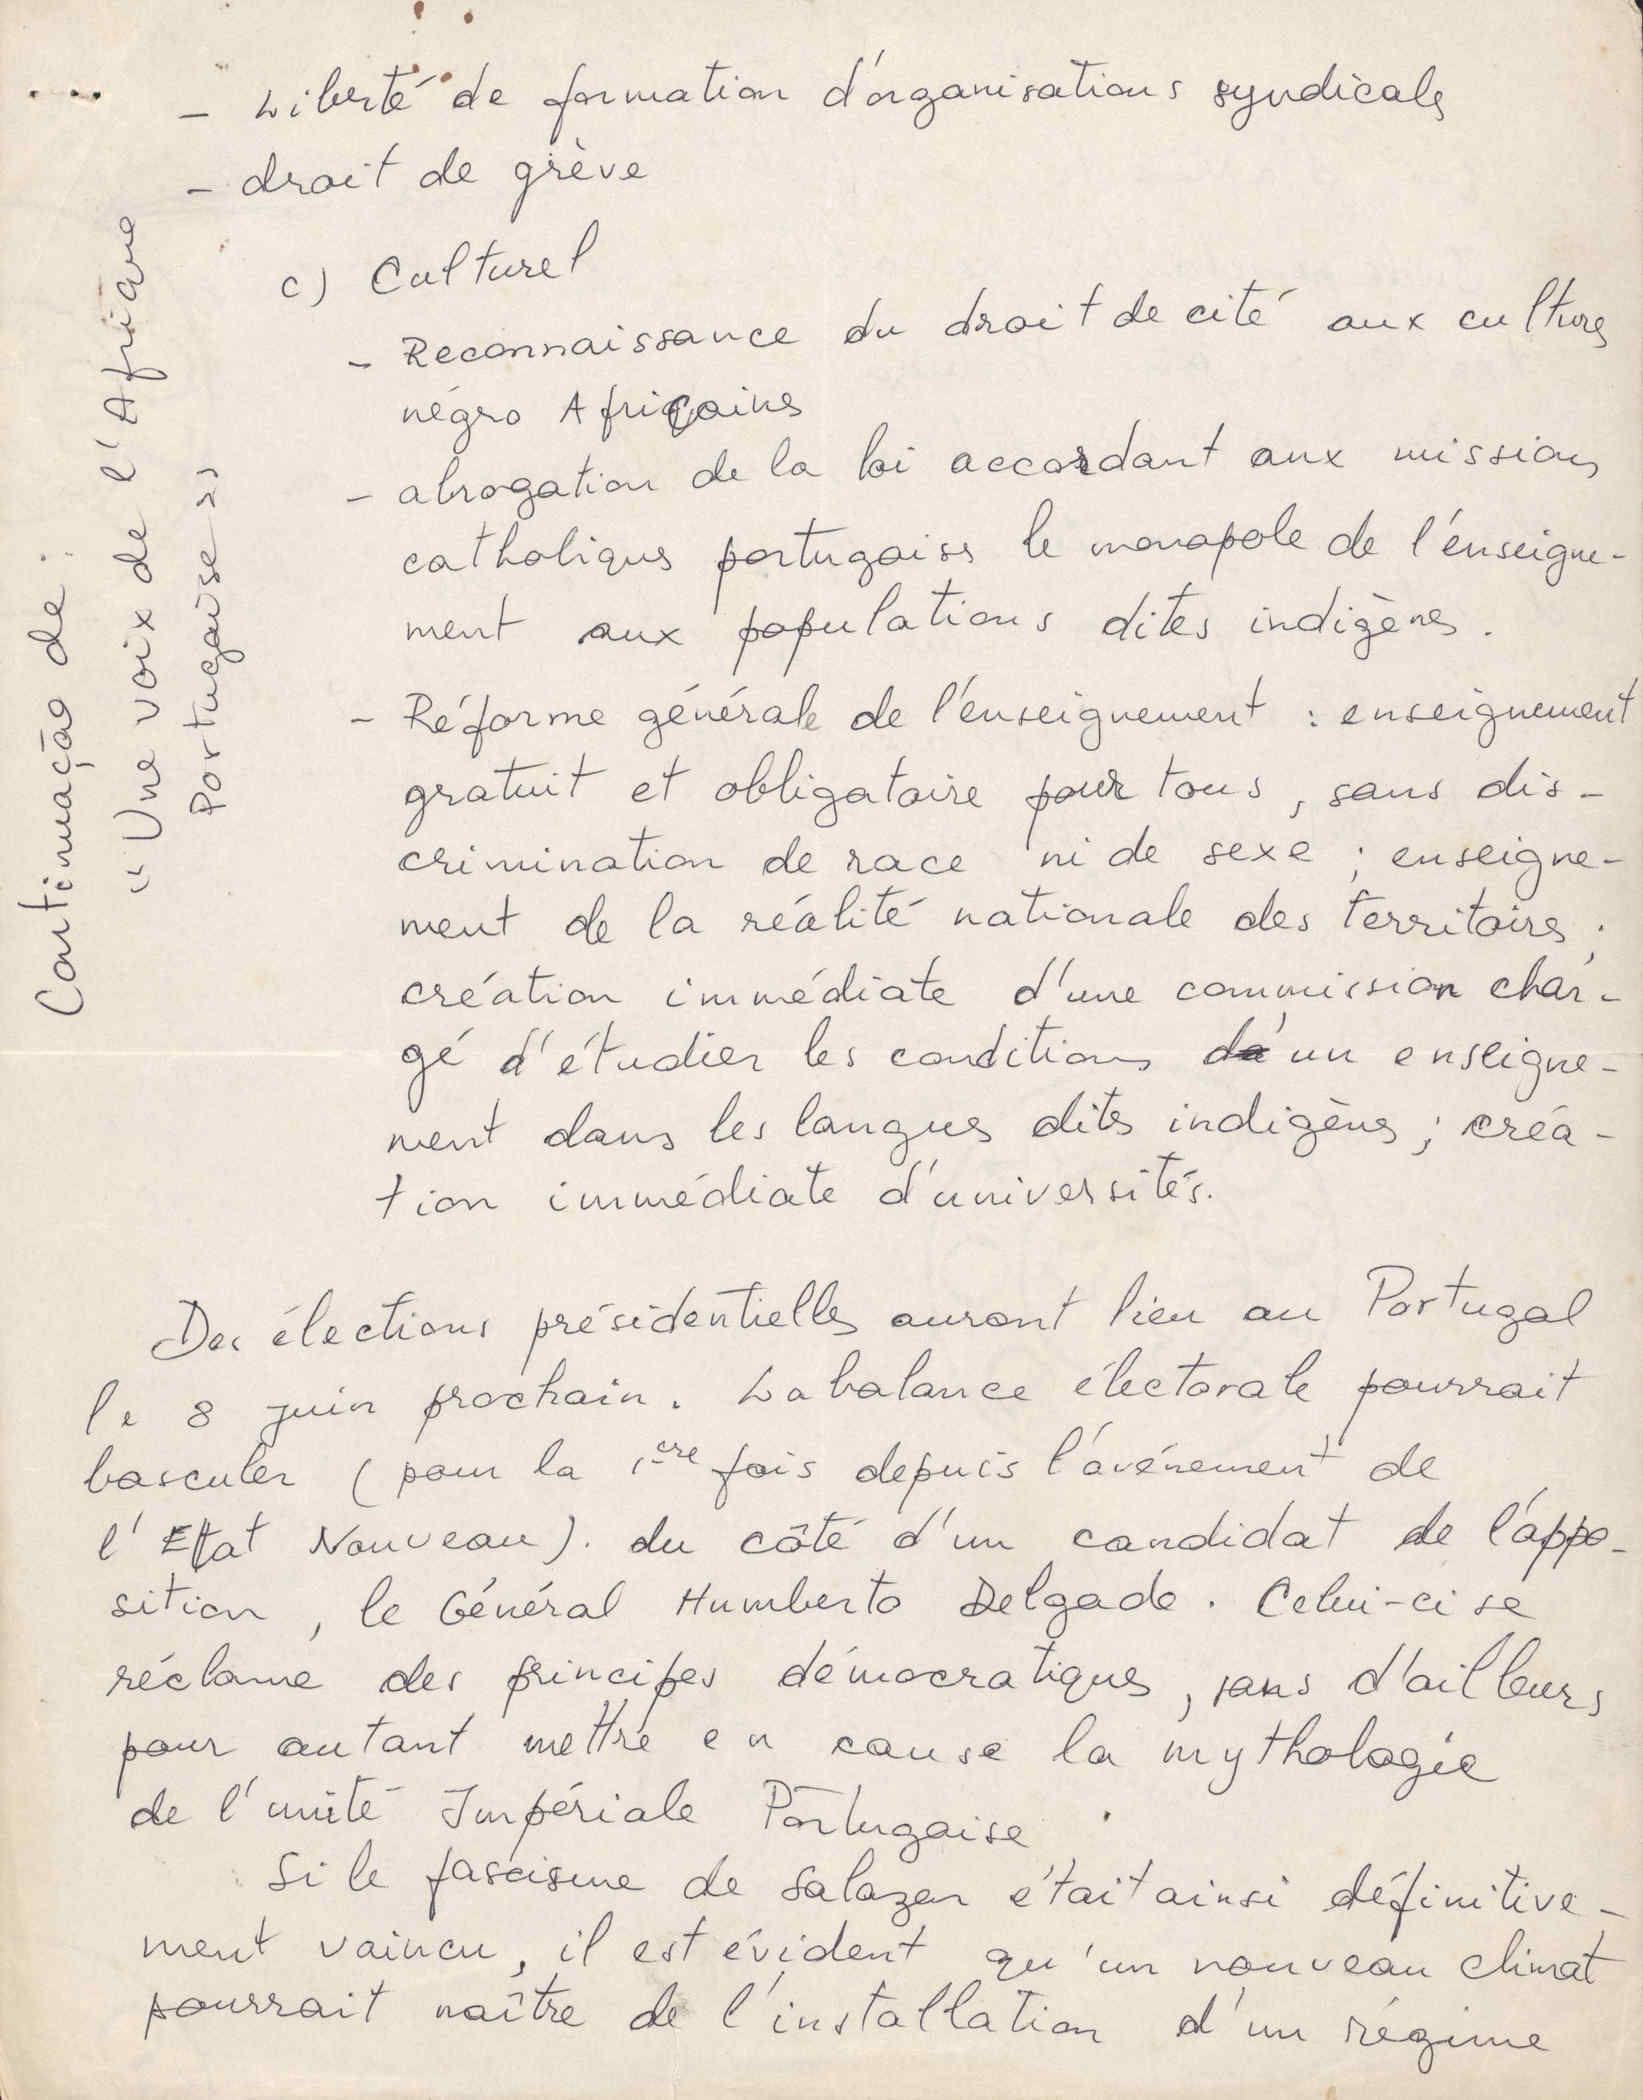 ...
- Liberté de formation d'organisations syndicales
- droit de grève
c) Culturel
- Reconnaissance du droit de cité aux cultures
négro Africaines
- abrogation de la loi accordant aux missions
catholiques portugaises le monopole de l'énseigne-
ment aux populations dites indigènes.
- Réforme générale de l'énseignement : enseignement
gratuit et obligatoire pour tous, sans dis-
crimination de race ni de sexe ; enseigne-
ment de la réalité nationale des territoires ;
création immédiate d'une commission char-
gé d'étudier les conditions d'un enseigne-
ment dans les langues dites indigènes ; créa-
tion immédiate d'universités.
Des élections présidentielles auront lieu au Portugal
le 8 juin prochain. La balance électorale pourrait
basculer (pour la 1ère fois depuis l'avénement de
l'Etat Nouveau). du côté d'un candidat de l'oppo-
sition, le Général Humberto Delgado. Celui-ci se
réclame des principes démocratiques, sans d'ailleurs
pour autant mettre en cause la mythologie
de l'unité Impériale Portugaise.
Si le fascisme de Salazar était ainsi définitive-
ment vaincu, il est évident qu'un nouveau climat
pourrait naître de l'installation d'un régime
Continuação de :
"Une voix de l'Afrique
Portugaise"